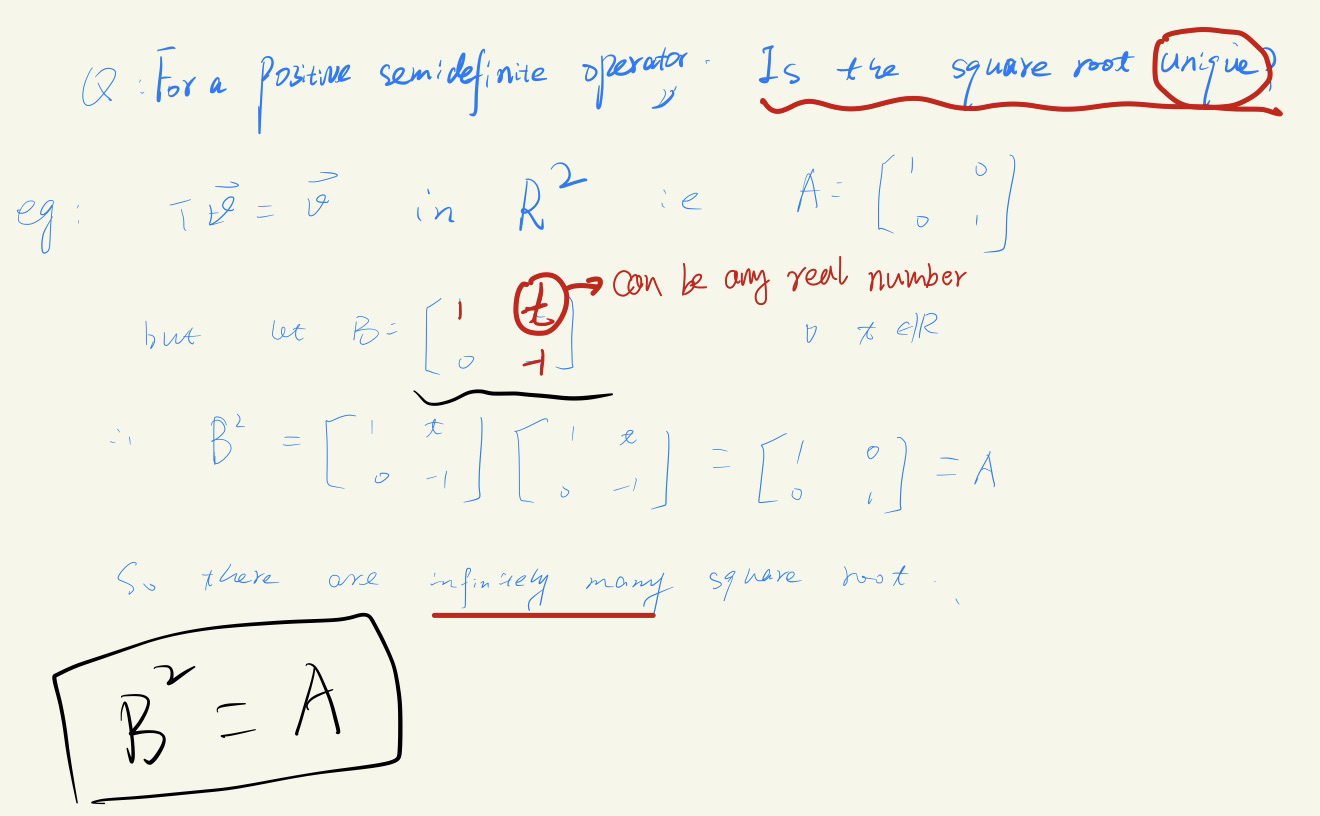 Q: For a positive semidefinite operator. Is the square root unique?
eg: Tv⃗ = v⃗ in R² ie A = [1 0; 0 1]
but let B = [1 t; 0 -1] t → can be any real number ∀ t ∈ R
∴ B² = [1 t; 0 -1] [1 t; 0 -1] = [1 0; 0 1] = A
So there are infinitely many square root.
B² = A